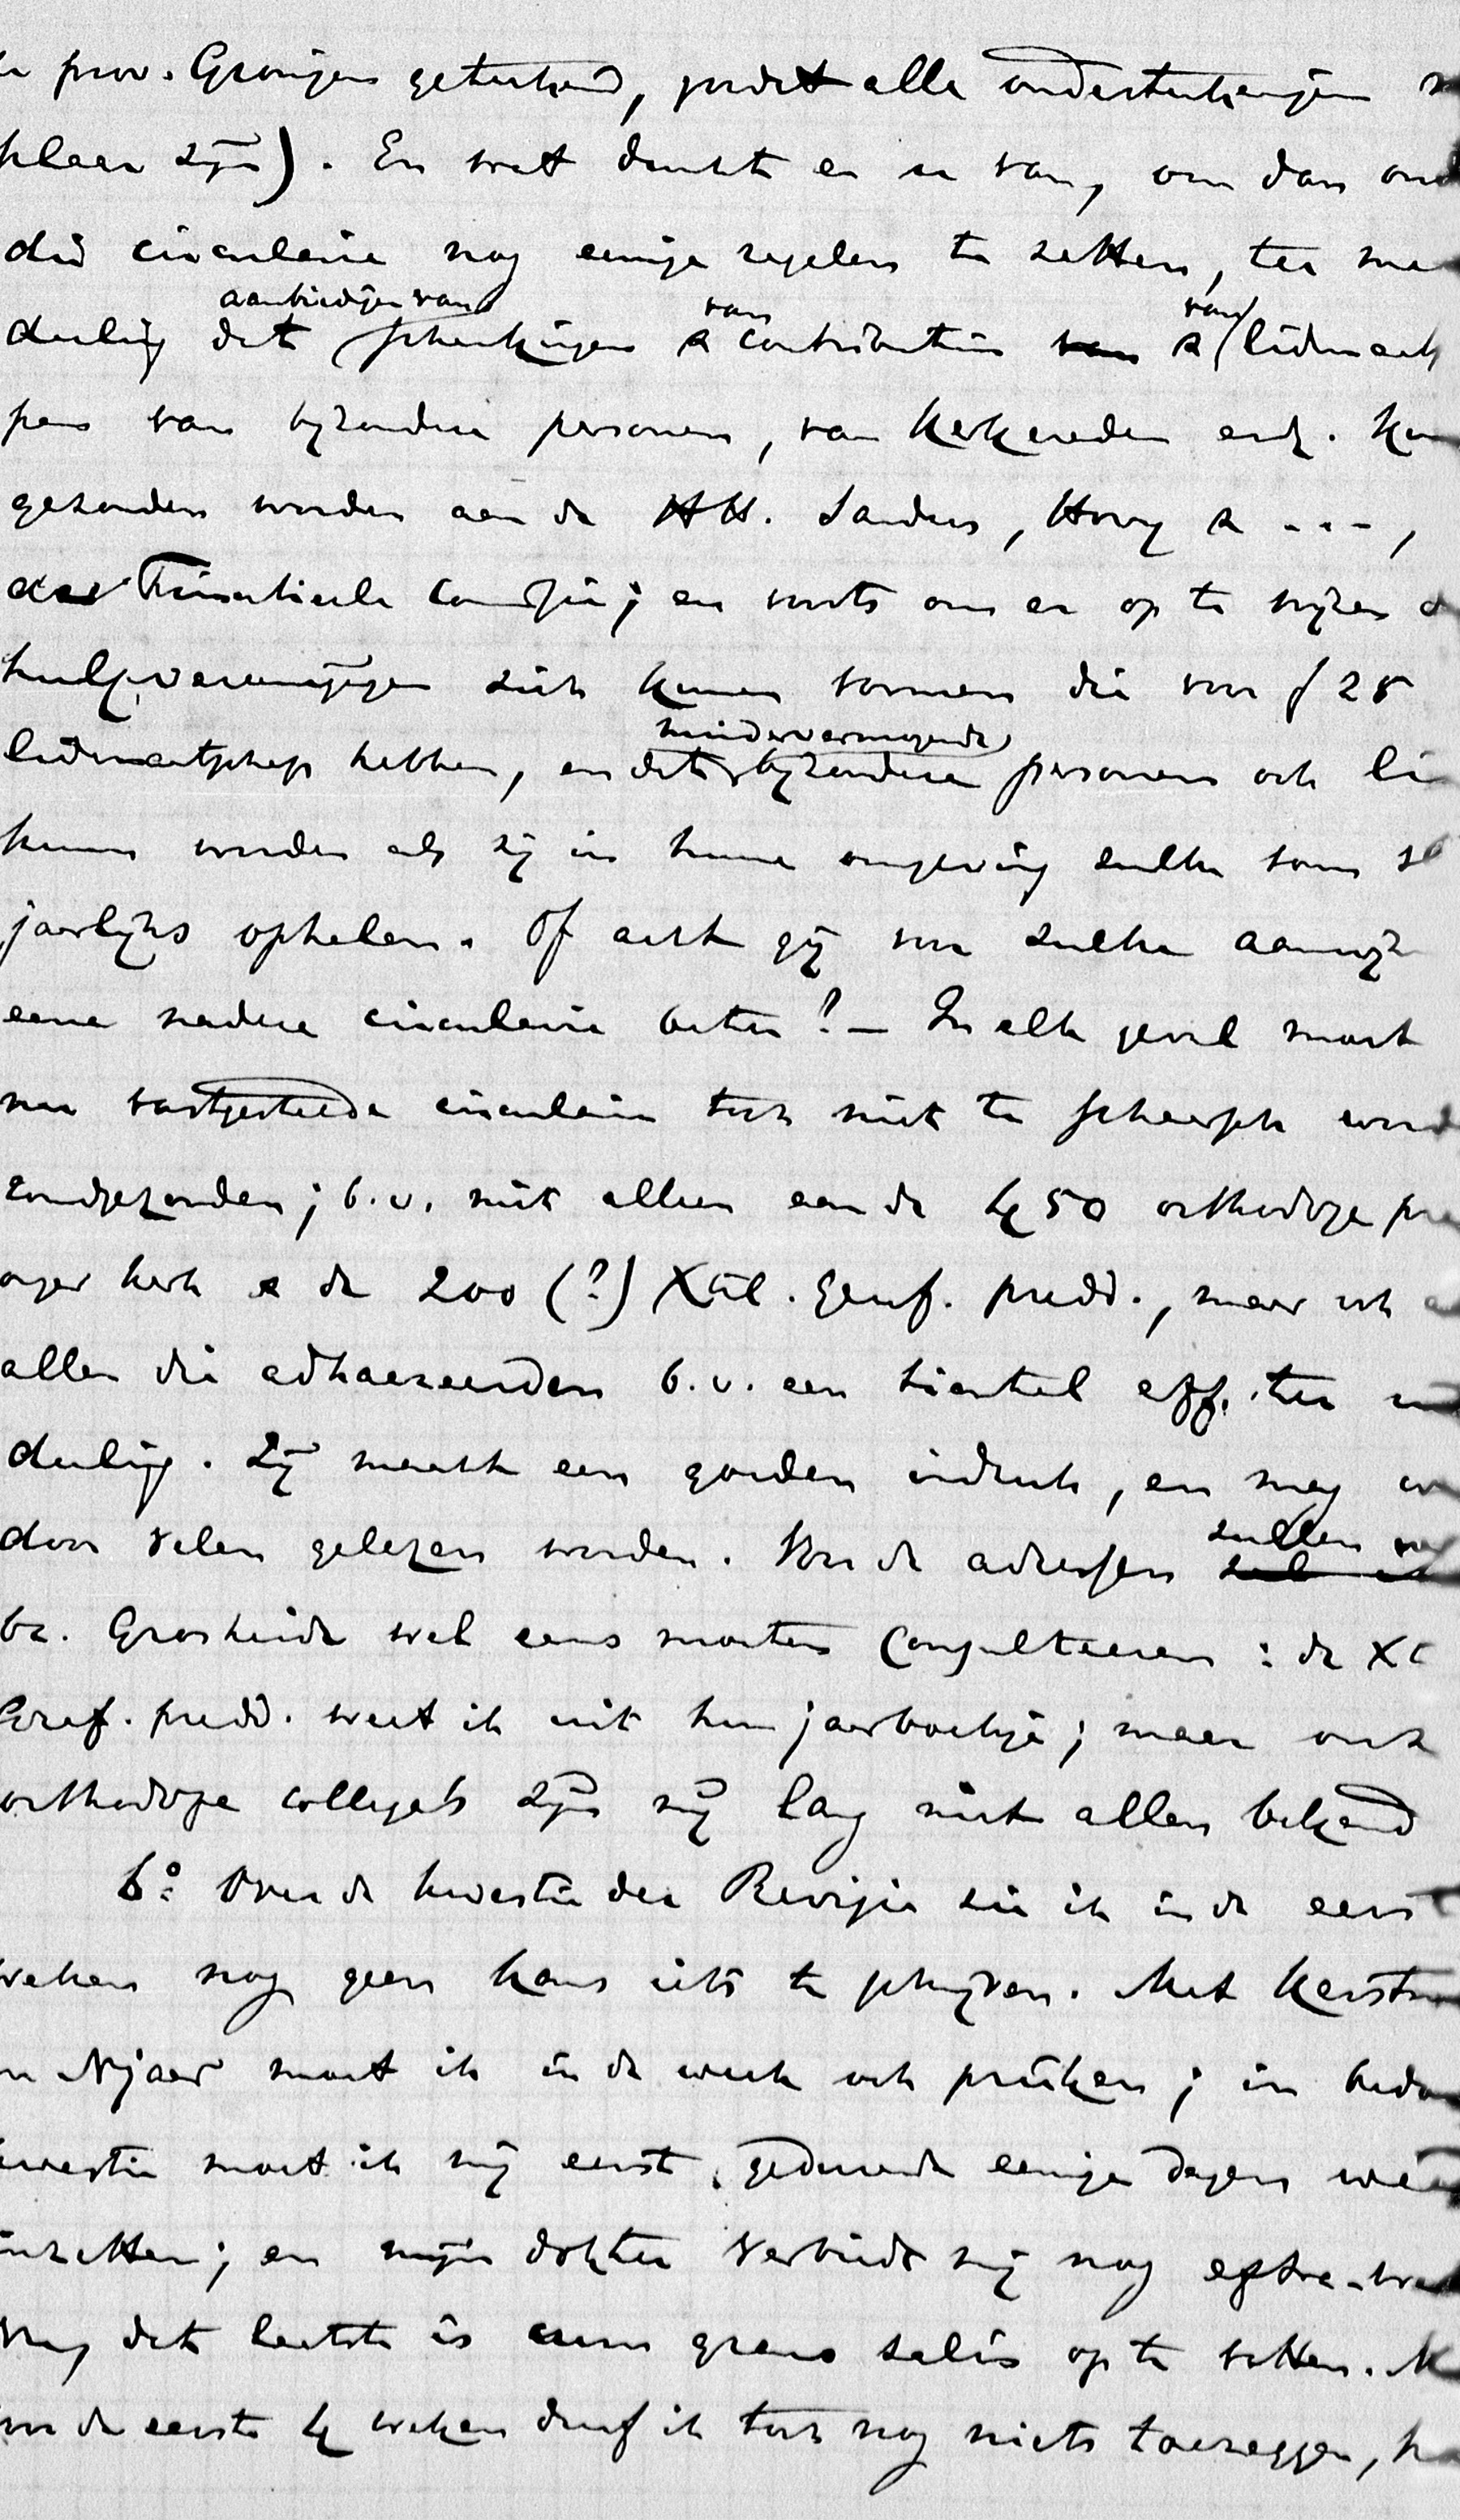 prov. Groningen geteekend, zoodat alle onderteekeningen
klaar zijn). En wat denkt er u van, om dan
die circulaire nog eenige regelen te zetten, ter
aanbiedingen van van van
deeling dat schenkingen & contributiën & lidmaat
pen van byzondere personen, van kerkeraden enz.
gezonden worden aan de HH. Sanders, Hovy & ---,
Financieele Commissie; en voorts om er op te wijzen
hulpvereenigingen zich kunnen vormen die voor ƒ 25
mindervermogende
lidmaatschap hebben, en dat byzondere personen ook
kunnen worden als zij in hunne omgeving zulke som
jaarlijks ophalen. Of acht gij voor zulke
eene nadere circulaire beter? — In elk geval moet
nu vastgestelde circulaire toch niet te schaarsch
rondgezonden; b.v. niet alleen aan de 450 orthodoxe
onzer kerk & de 200 (?) Xtel. Geref. predd., maar ook
allen die adhaereerden b.v. een tiental exx. ter
deeling. Zij maakt een goeden indruk, en mag
zullen
door velen gelezen worden. Voor de adressen
br. Grosheide wel eens moeten consulteeren: de
Geref. predd. weet ik uit hun jaarboekje; maar onze
orthodoxe collega's zijn mij lang niet allen bekend
6º. Over de kwestie der Revisie zie ik in de
weken nog geen kans iets te schrijven. Met
Njaar moet ik in de week ook preeken; in
kwestie moet ik mij eerst gedurende eenige dagen
inzetten; en mijn dokter verbiedt mij nog
dit laatste is cum grano salis op te vatten.
voor de eerste 4 weken durf ik toch nog niets toezeggen,